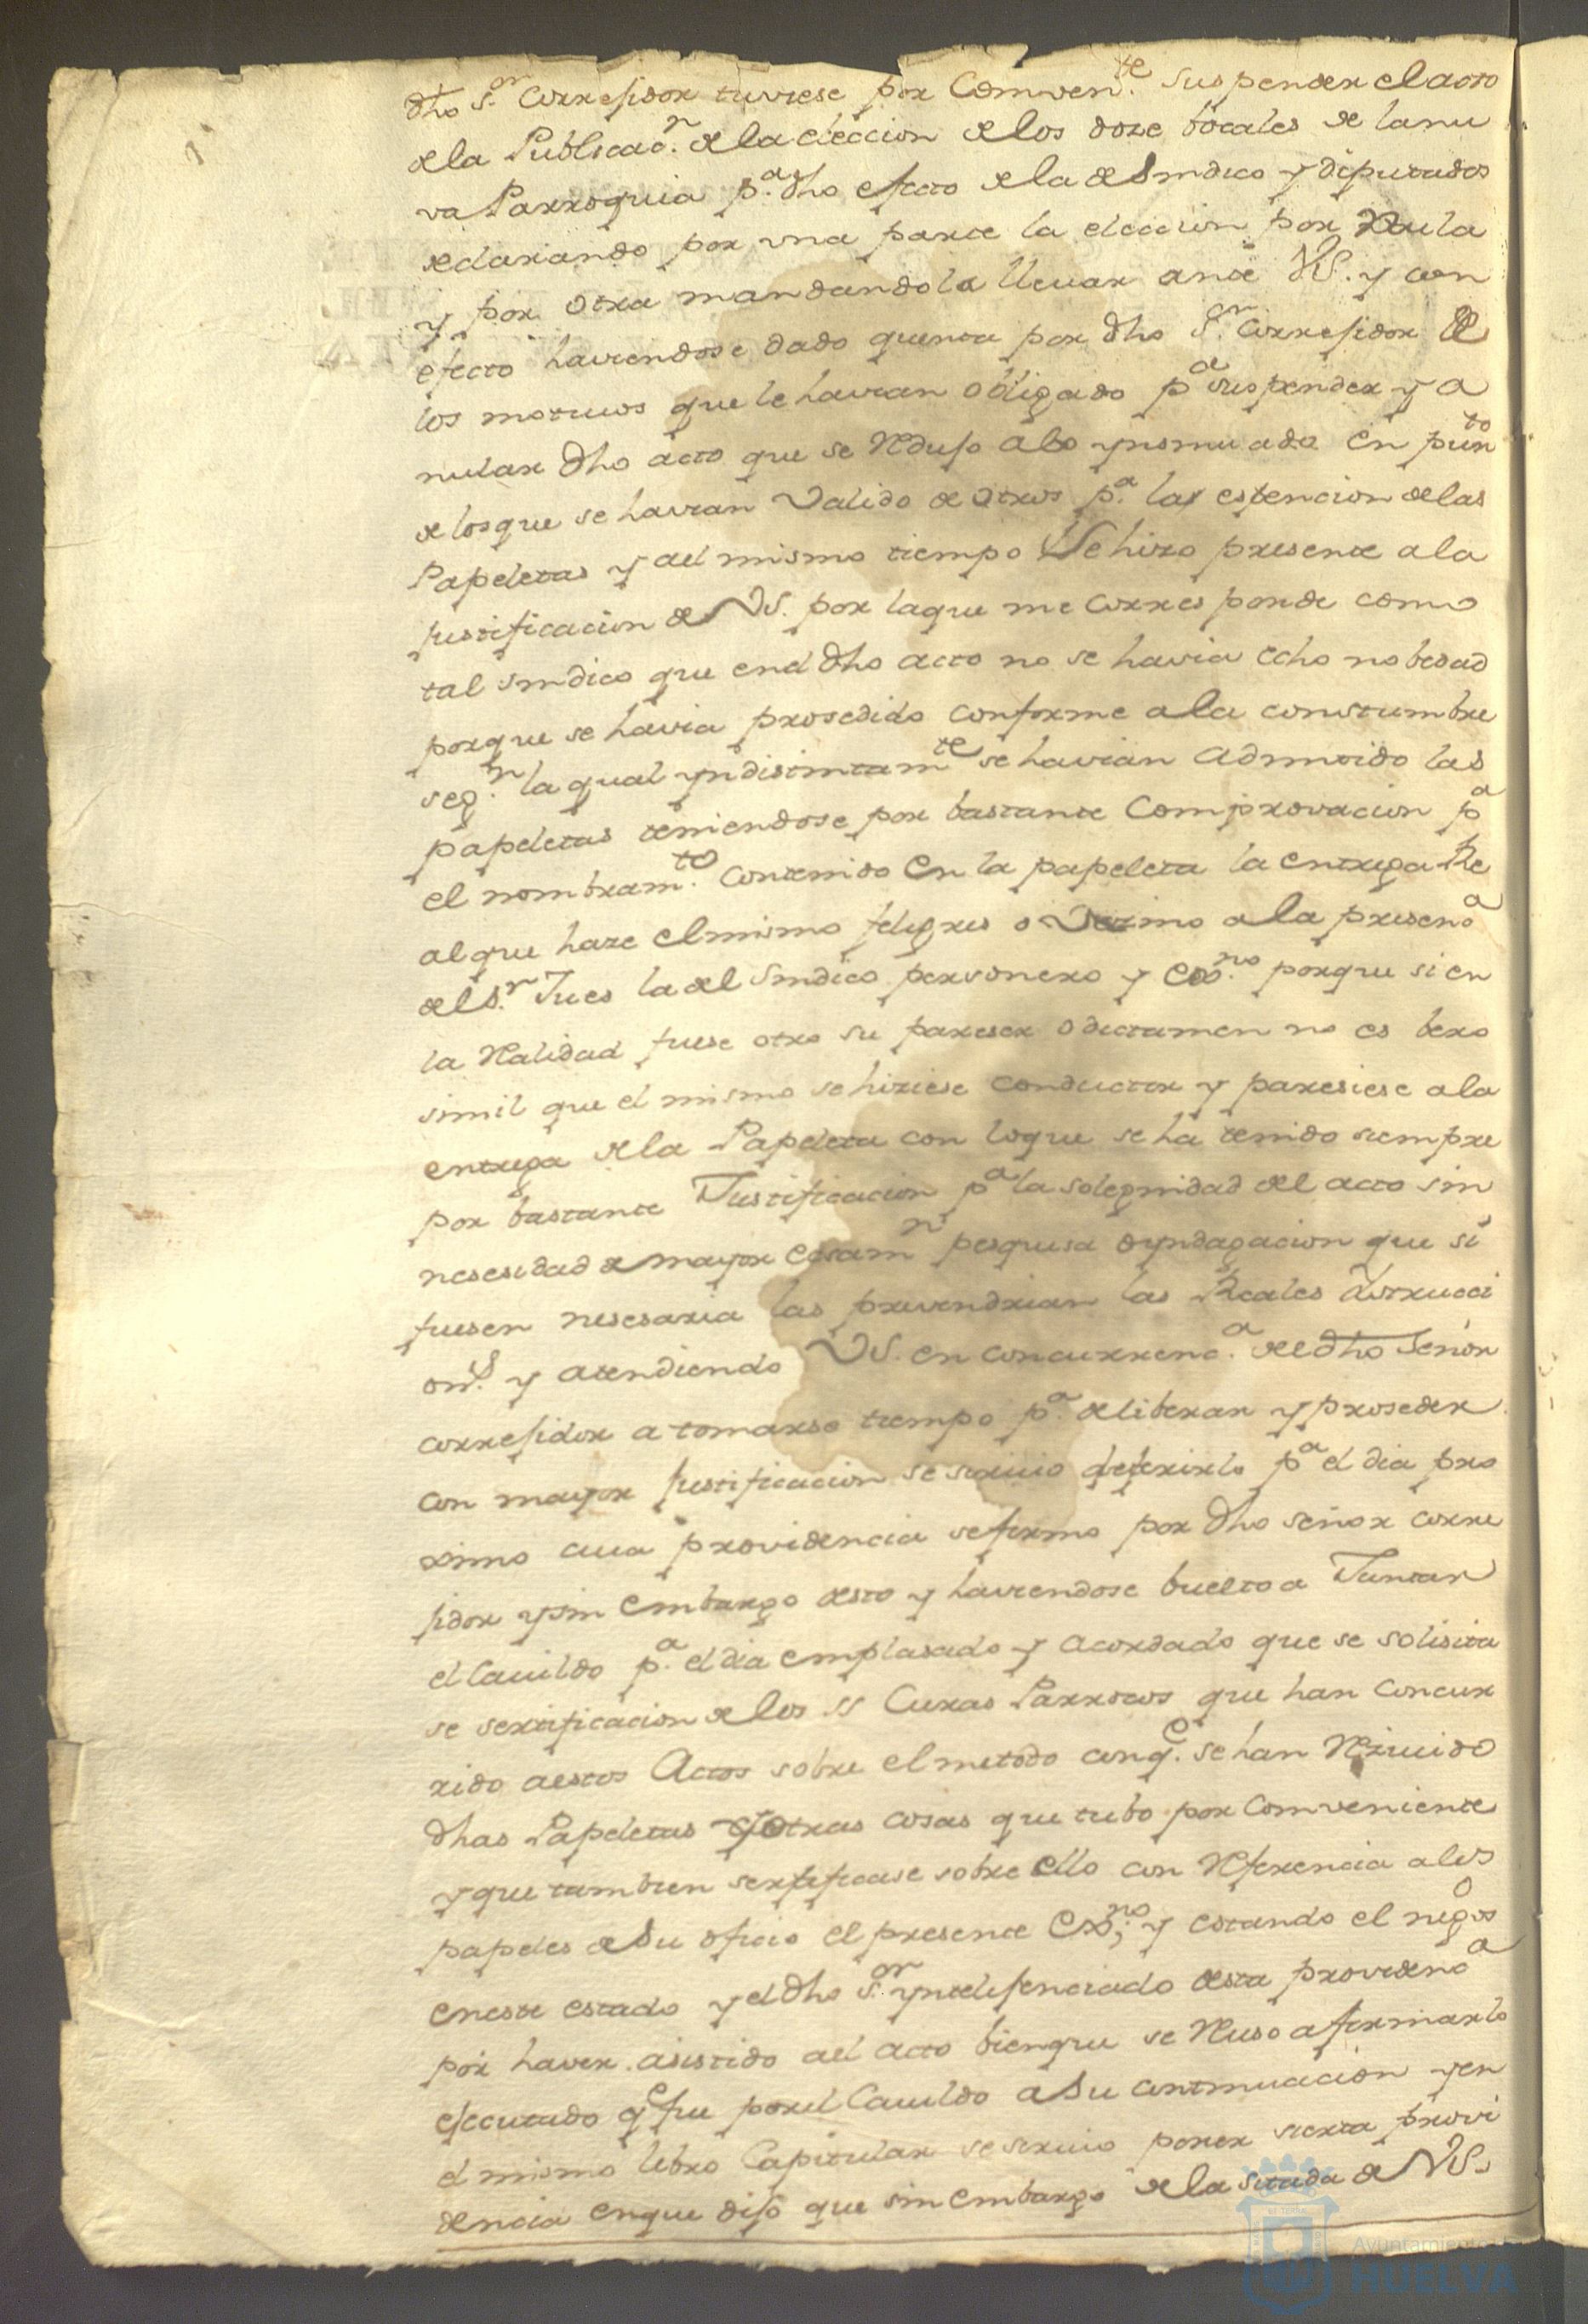 dho S.or Correjidor tuviese por Comven.te suspender el acto
de la Publicac.n de la eleccion de los doze bocales de la nu
va Parroquia p.a dho efecto de la de Sindico y diputados
declarando por una parte la eleccion por Nula
y por otra mandandola llevar ante VS. y con
efecto haviendose dado quenta por dho S.or Correjidor de
los motivos que le havian obligado p.a suspender y a
nular dho acto que se Redujo a lo ynsinuado en punto
de los que se havian Valido de otros p.a la estencion de las
Papeletas y al mismo tiempo Se hizo presente a la
justificacion de VS. por la que me corresponde como
tal sindico que en el dho acto no se havia echo nobedad
porque se havia prosedido conforme a la constumbre
seg.n la qual yndistintam.te se havian Admitido las
papeletas teniendose por bastante Comprovacion p.a
el nombram.to contenido en la papeleta la entrega de
al que haze el mismo feligres o Vezino a la presenc.a
del S.r Jues la del Sindico personero y es.no porque si en
la Realidad fuese otro su pareser o dictamen no es bero
simil que el mismo se hiziese conductor y paresiese a la
entrega de la Papeleta con loque se ha tenido siempre
por bastante Justificacion p.a la solegnidad del acto sin
nesesidad de mayor esam.n pesquisa o yndagacion que si
fuesen nesesaria las prevendrian las Reales Ynstrucci
on.s y atendiendo VS. en concurrenc.a del dho Señor
correjidor a tomarse tiempo p.a deliberar y proseder
con mayor justificacion se sirvio deferirlo p.a el dia pro
ximo cuia providencia se firmo por dho señor corre
jidor y sin embargo desto y haviendose buelto a Juntar
el Cavildo p.a el dia emplasado y acordado que se solisita
se sertificacion de los SS Curas Parrocos que han concur
rido a estos Actos sobre el metodo conq.e se han Resivido
dhas Papeletas y otras cosas que tubo por comveniente
y que tambien sertificase sobre ello con Referencia a los
papeles de Su oficio el presente Es.no; y estando el negosio
en este estado y el dho S.or yntelijenciado desta providenc.a
por haver asistido al acto bienque se Reuso a firmarlo
ejecutado q.e fue por el Cavildo a Su continuacion y en
el mismo libro Capitular se sirvio poner sierta provi
dencia enque dijo que sin embargo de la sitada de VS.
Ayuntamiento de
HUELVA